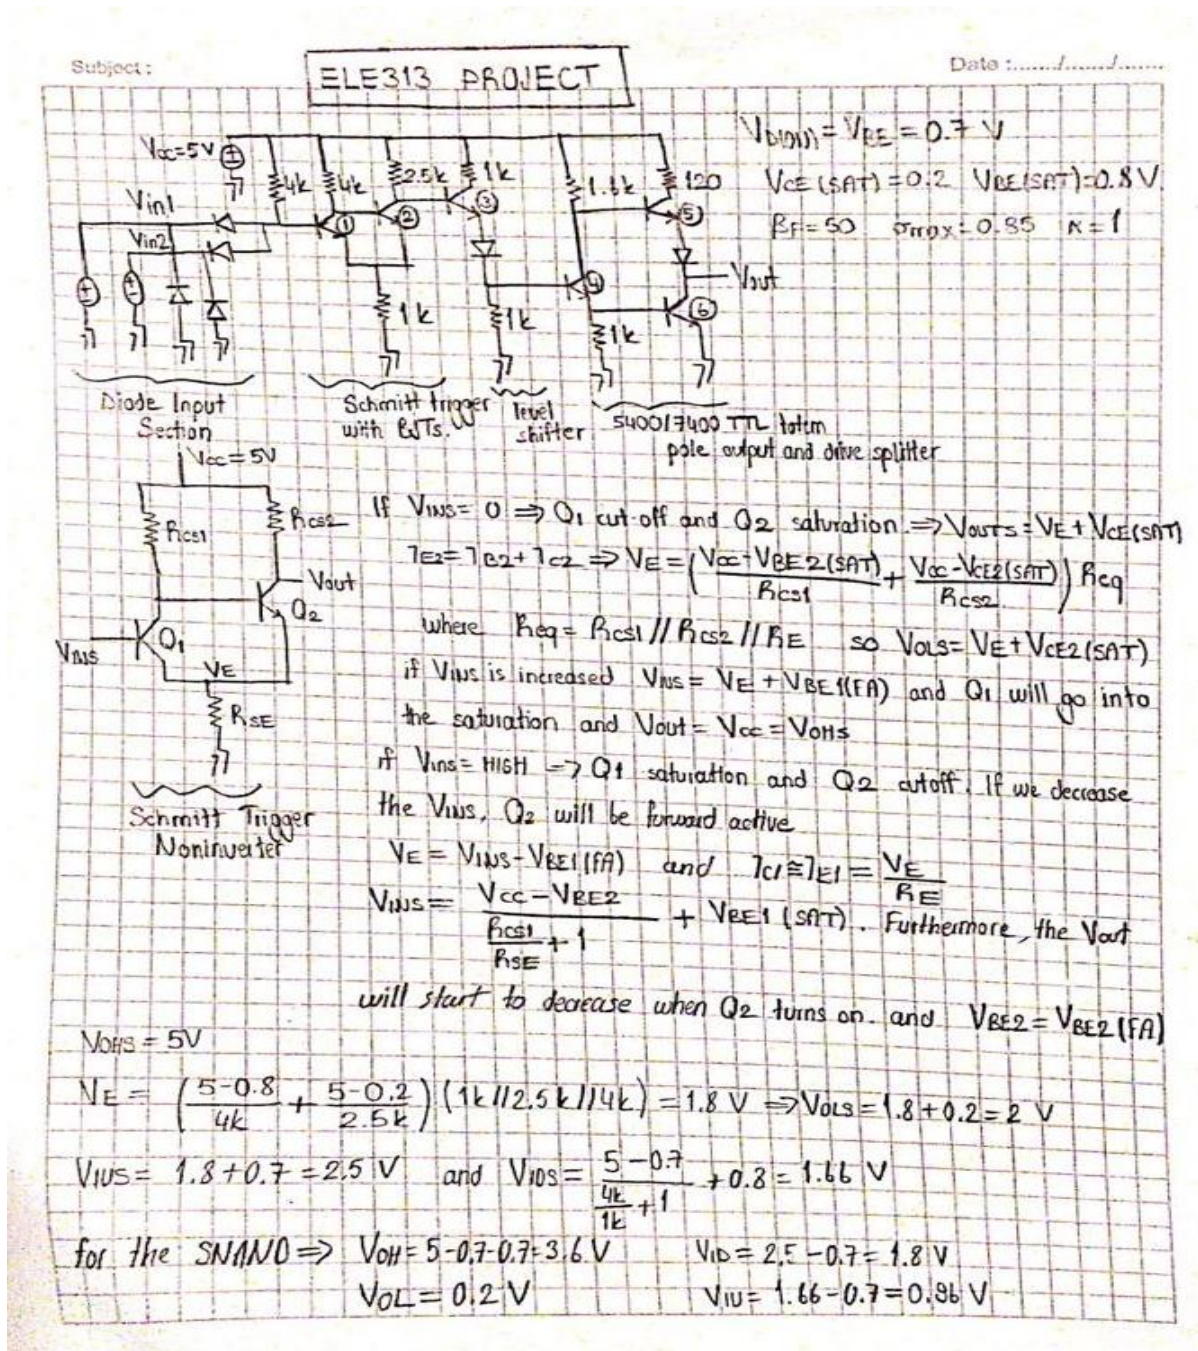 Subject:
Date :......./......./.......
ELE313 PROJECT
VD(ON) = VBE = 0.7 V
VCE (SAT) = 0.2 VBE(SAT) = 0.8 V
βF = 50 σmax = 0.85 K = 1
Vcc=5V
4k
4k
2.5k
1k
1.6k
120
Vin1
Vin2
1
2
3
4
5
6
Vout
1k
1k
1k
Diode Input
Section
Schmitt trigger
with BJTs.
level
shifter
5400/7400 TTL totem
pole output and drive splitter
Vcc = 5V
RCS1
RCS2
Vout
Q2
VINS
Q1
VE
RSE
Schmitt Trigger
Noninverter
If VINS = 0 ⇒ Q1 cut-off and Q2 saturation. ⇒ VOUTS = VE + VCE(SAT)
IE2 = IB2 + IC2 ⇒ VE = (Vcc-VBE2(SAT)/RCS1 + Vcc-VCE2(SAT)/RCS2) Req
where Req = RCS1 // RCS2 // RE so VOLS = VE + VCE2(SAT)
if VINS is increased VINS = VE + VBE1(FA) and Q1 will go into
the saturation and Vout = Vcc = VOHS
if VINS = HIGH -> Q1 saturation and Q2 cutoff. If we decrease
the VINS, Q2 will be forward active
VE = VINS - VBE1(FA) and IC1 ≅ IE1 = VE/RE
VINS = Vcc - VBE2 / (RCS1/RSE + 1) + VBE1 (SAT). Furthermore, the Vout
will start to decrease when Q2 turns on. and VBE2 = VBE2 (FA)
VOHS = 5V
VE = (5-0.8/4k + 5-0.2/2.5k) (1k//2.5k//4k) = 1.8 V ⇒ VOLS = 1.8 + 0.2 = 2 V
VIUS = 1.8 + 0.7 = 2.5 V and VIDS = 5-0.7 / (4k/1k + 1) + 0.8 = 1.66 V
for the SNAND ⇒ VOH = 5-0.7-0.7 = 3.6 V VID = 2.5 - 0.7 = 1.8 V
VOL = 0.2 V VIU = 1.66 - 0.7 = 0.96 V